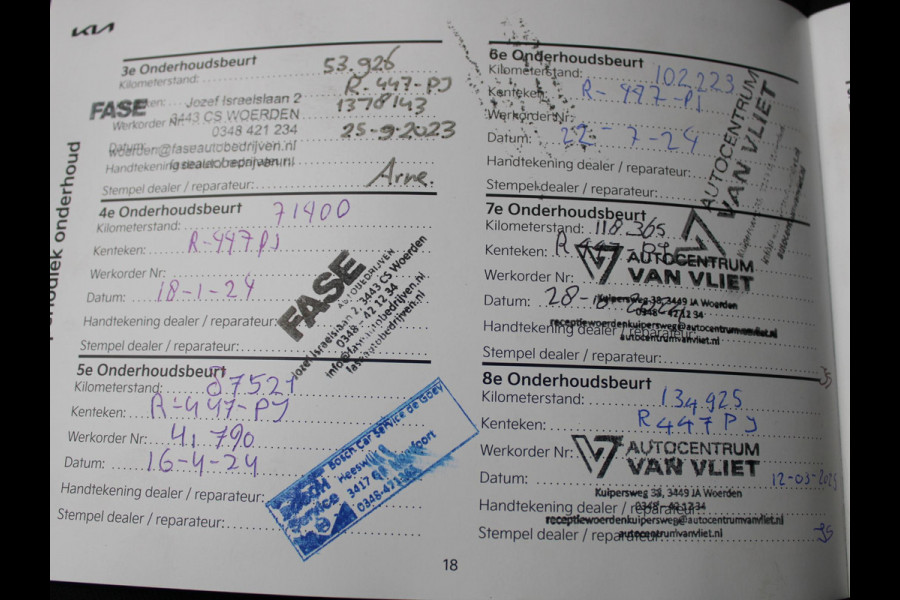 KIA
3e Onderhoudsbeurt
Kilometerstand: 53.926
Kenteken: R-447-PJ
FASE
Jozef Israelslaan 2
Werkorder Nr: 1378143
3443 CS WOERDEN
0348 421 234
Datum: 25-9-2023
woerden@faseautobedrijven.nl
Handtekening dealer / reparateur:
faseautobedrijven.nl
Stempel dealer / reparateur: Arne.
4e Onderhoudsbeurt
Kilometerstand: 71400
Kenteken: R-447 PJ
Werkorder Nr:
Datum: 18-1-24
Handtekening dealer / reparateur:
Stempel dealer / reparateur:
FASE
AUTOBEDRIJVEN
Jozef Israelslaan 2, 3443 CS Woerden
0348 - 42 12 34
info@faseautobedrijven.nl
faseautobedrijven.nl
5e Onderhoudsbeurt
Kilometerstand: 87521
Kenteken: R-447-PJ
Werkorder Nr: 41.790
Datum: 16-4-24
Handtekening dealer / reparateur:
Stempel dealer / reparateur:
Bosch Car Service de Goey
Service
6e Onderhoudsbeurt
Kilometerstand: 102.223
Kenteken: R-447-PJ
Werkorder Nr:
Datum: 22-7-24
Handtekening dealer / reparateur:
Stempel dealer / reparateur:
AUTOCENTRUM
VAN VLIET
7e Onderhoudsbeurt
Kilometerstand: 118.365
Kenteken: R 447-PJ
AUTOCENTRUM
VAN VLIET
Werkorder Nr:
Datum: 28-10-2024
Kuipersweg 38, 3449 JA Woerden
0348 - 42 12 34
Handtekening dealer / reparateur:
receptiewoerdenkuipersweg@autocentrumvanvliet.nl
autocentrumvanvliet.nl
Stempel dealer / reparateur:
8e Onderhoudsbeurt
Kilometerstand: 134925
Kenteken: R 447 PJ
Werkorder Nr:
AUTOCENTRUM
VAN VLIET
Datum: 12-03-2025
Kuipersweg 38, 3449 JA Woerden
Handtekening dealer / reparateur:
0348 - 42 12 34
receptiewoerdenkuipersweg@autocentrumvanvliet.nl
Stempel dealer / reparateur:
autocentrumvanvliet.nl
18